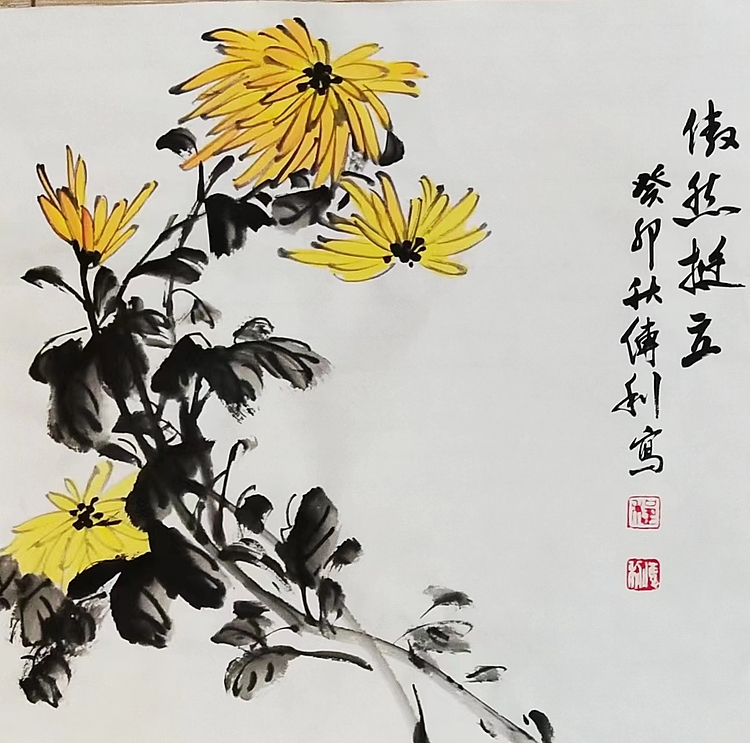 傲然挺立
癸卯秋傅利寫